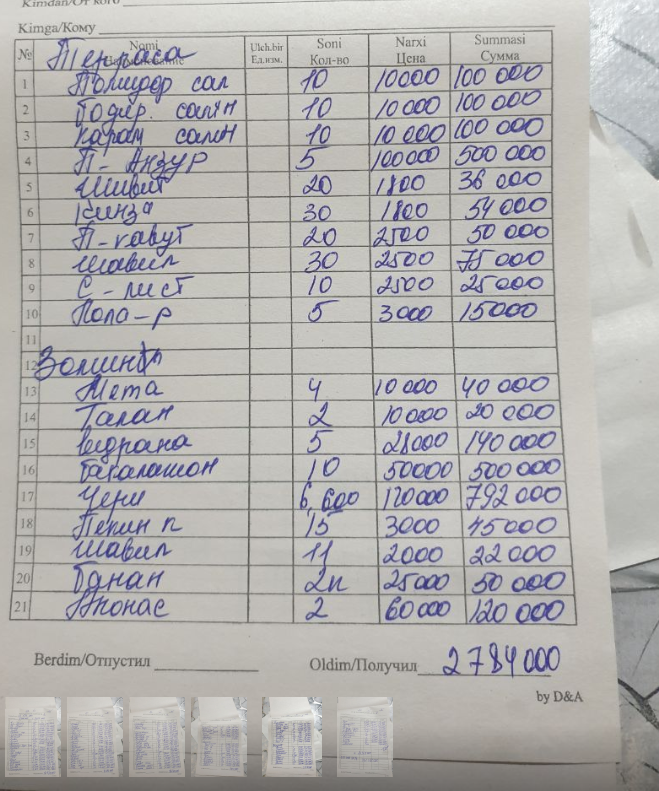 Kimdan/От кого
Kimga/Кому
№ Nomi Наименование Ulch.bir Ед.изм. Soni Кол-во Narxi Цена Summasi Сумма
Терраса
1 Помидор сал 10 10000 100 000
2 Бодир. салат 10 10000 100 000
3 Карам салат 10 10000 100 000
4 П-Анзур 5 100000 500 000
5 Шивит 20 1800 36 000
6 Кинза 30 1800 54000
7 П-кавут 20 2500 50 000
8 Шавил 30 2500 75000
9 С-лист 10 2500 25000
10 Пола-р 5 3000 15000
11
12
13 Мета 4 10 000 40 000
14 2 10000 20 000
15 5 28000 140 000
16 10 50000 500 000
17 Чери 6,600 120000 792 000
18 15 3000 45000
19 Шавил 11 2000 22 000
20 Банан 2п 25000 50 000
21 Ананас 2 60 000 120 000
Berdim/Отпустил Oldim/Получил 2784000
by D&A